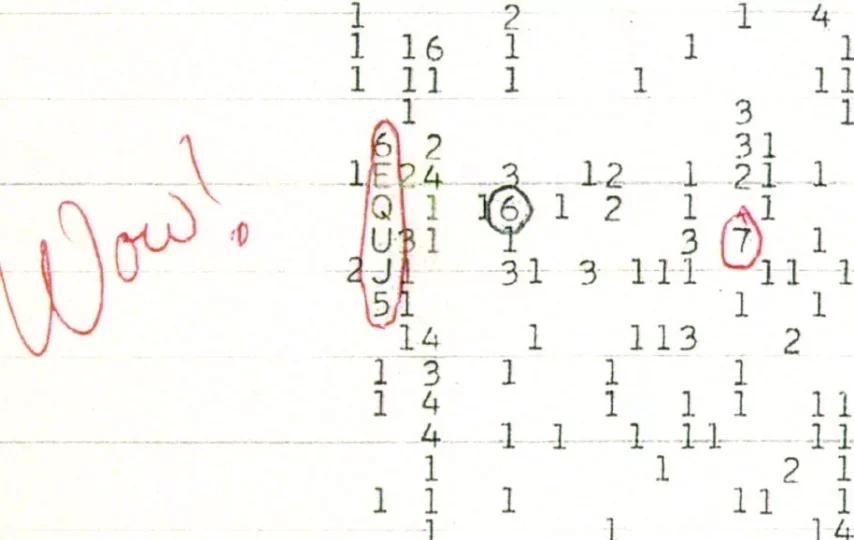 1 2 1 4
1 16 1 1 1
1 11 1 1 11
1 3 1
6 2 31
1 E 24 3 12 1 21 1
Wow!
Q 1 16 1 2 1 1
U 31 1 3 7 1
2 J 1 31 3 111 11 1
51 1 1
14 1 113 2
1 3 1 1 1
1 4 1 1 1 11
4 1 1 1 11 11
1 1 2 1
1 1 1 11 1
1 1 14